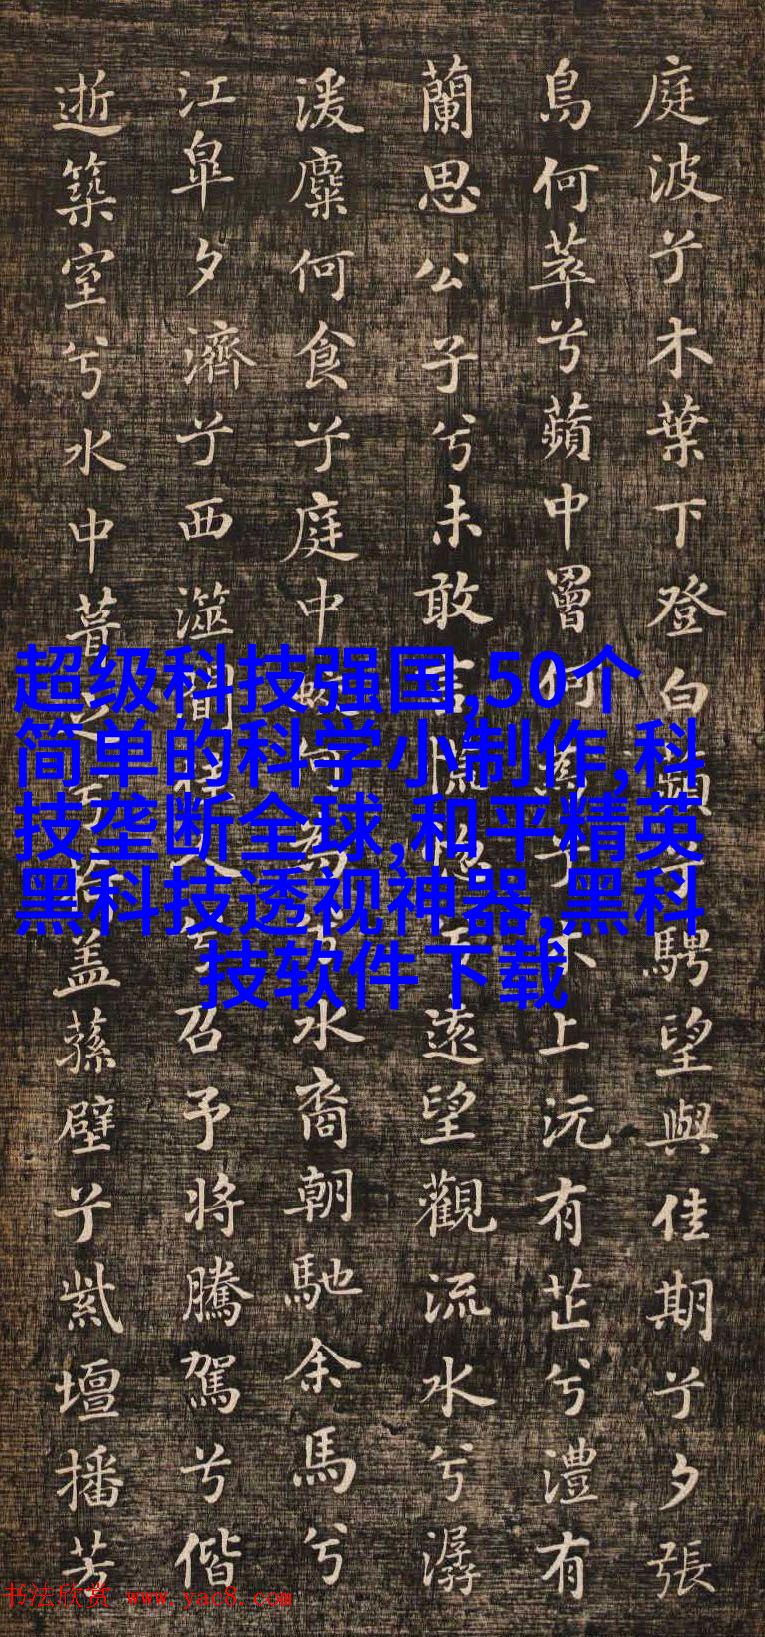 庭波兮木葉下登白蘋兮騁望與佳期兮夕張
鳥何萃兮蘋中罾何為兮木上沅有芷兮澧有
蘭思公子兮未敢言慌惚兮遠望觀流水兮潺
湲麋何食兮庭中蛟何為兮水裔朝馳余馬兮
江皐夕濟兮西澨聞佳人兮召予將騰駕兮偕
逝築室兮水中葺之兮荷蓋蓀壁兮紫壇播芳
超级科技强国,50个
简单的科学小制作,科
技垄断全球,和平精英
黑科技透视神器,黑科
技软件下载
书法欣赏 www.yac8.com